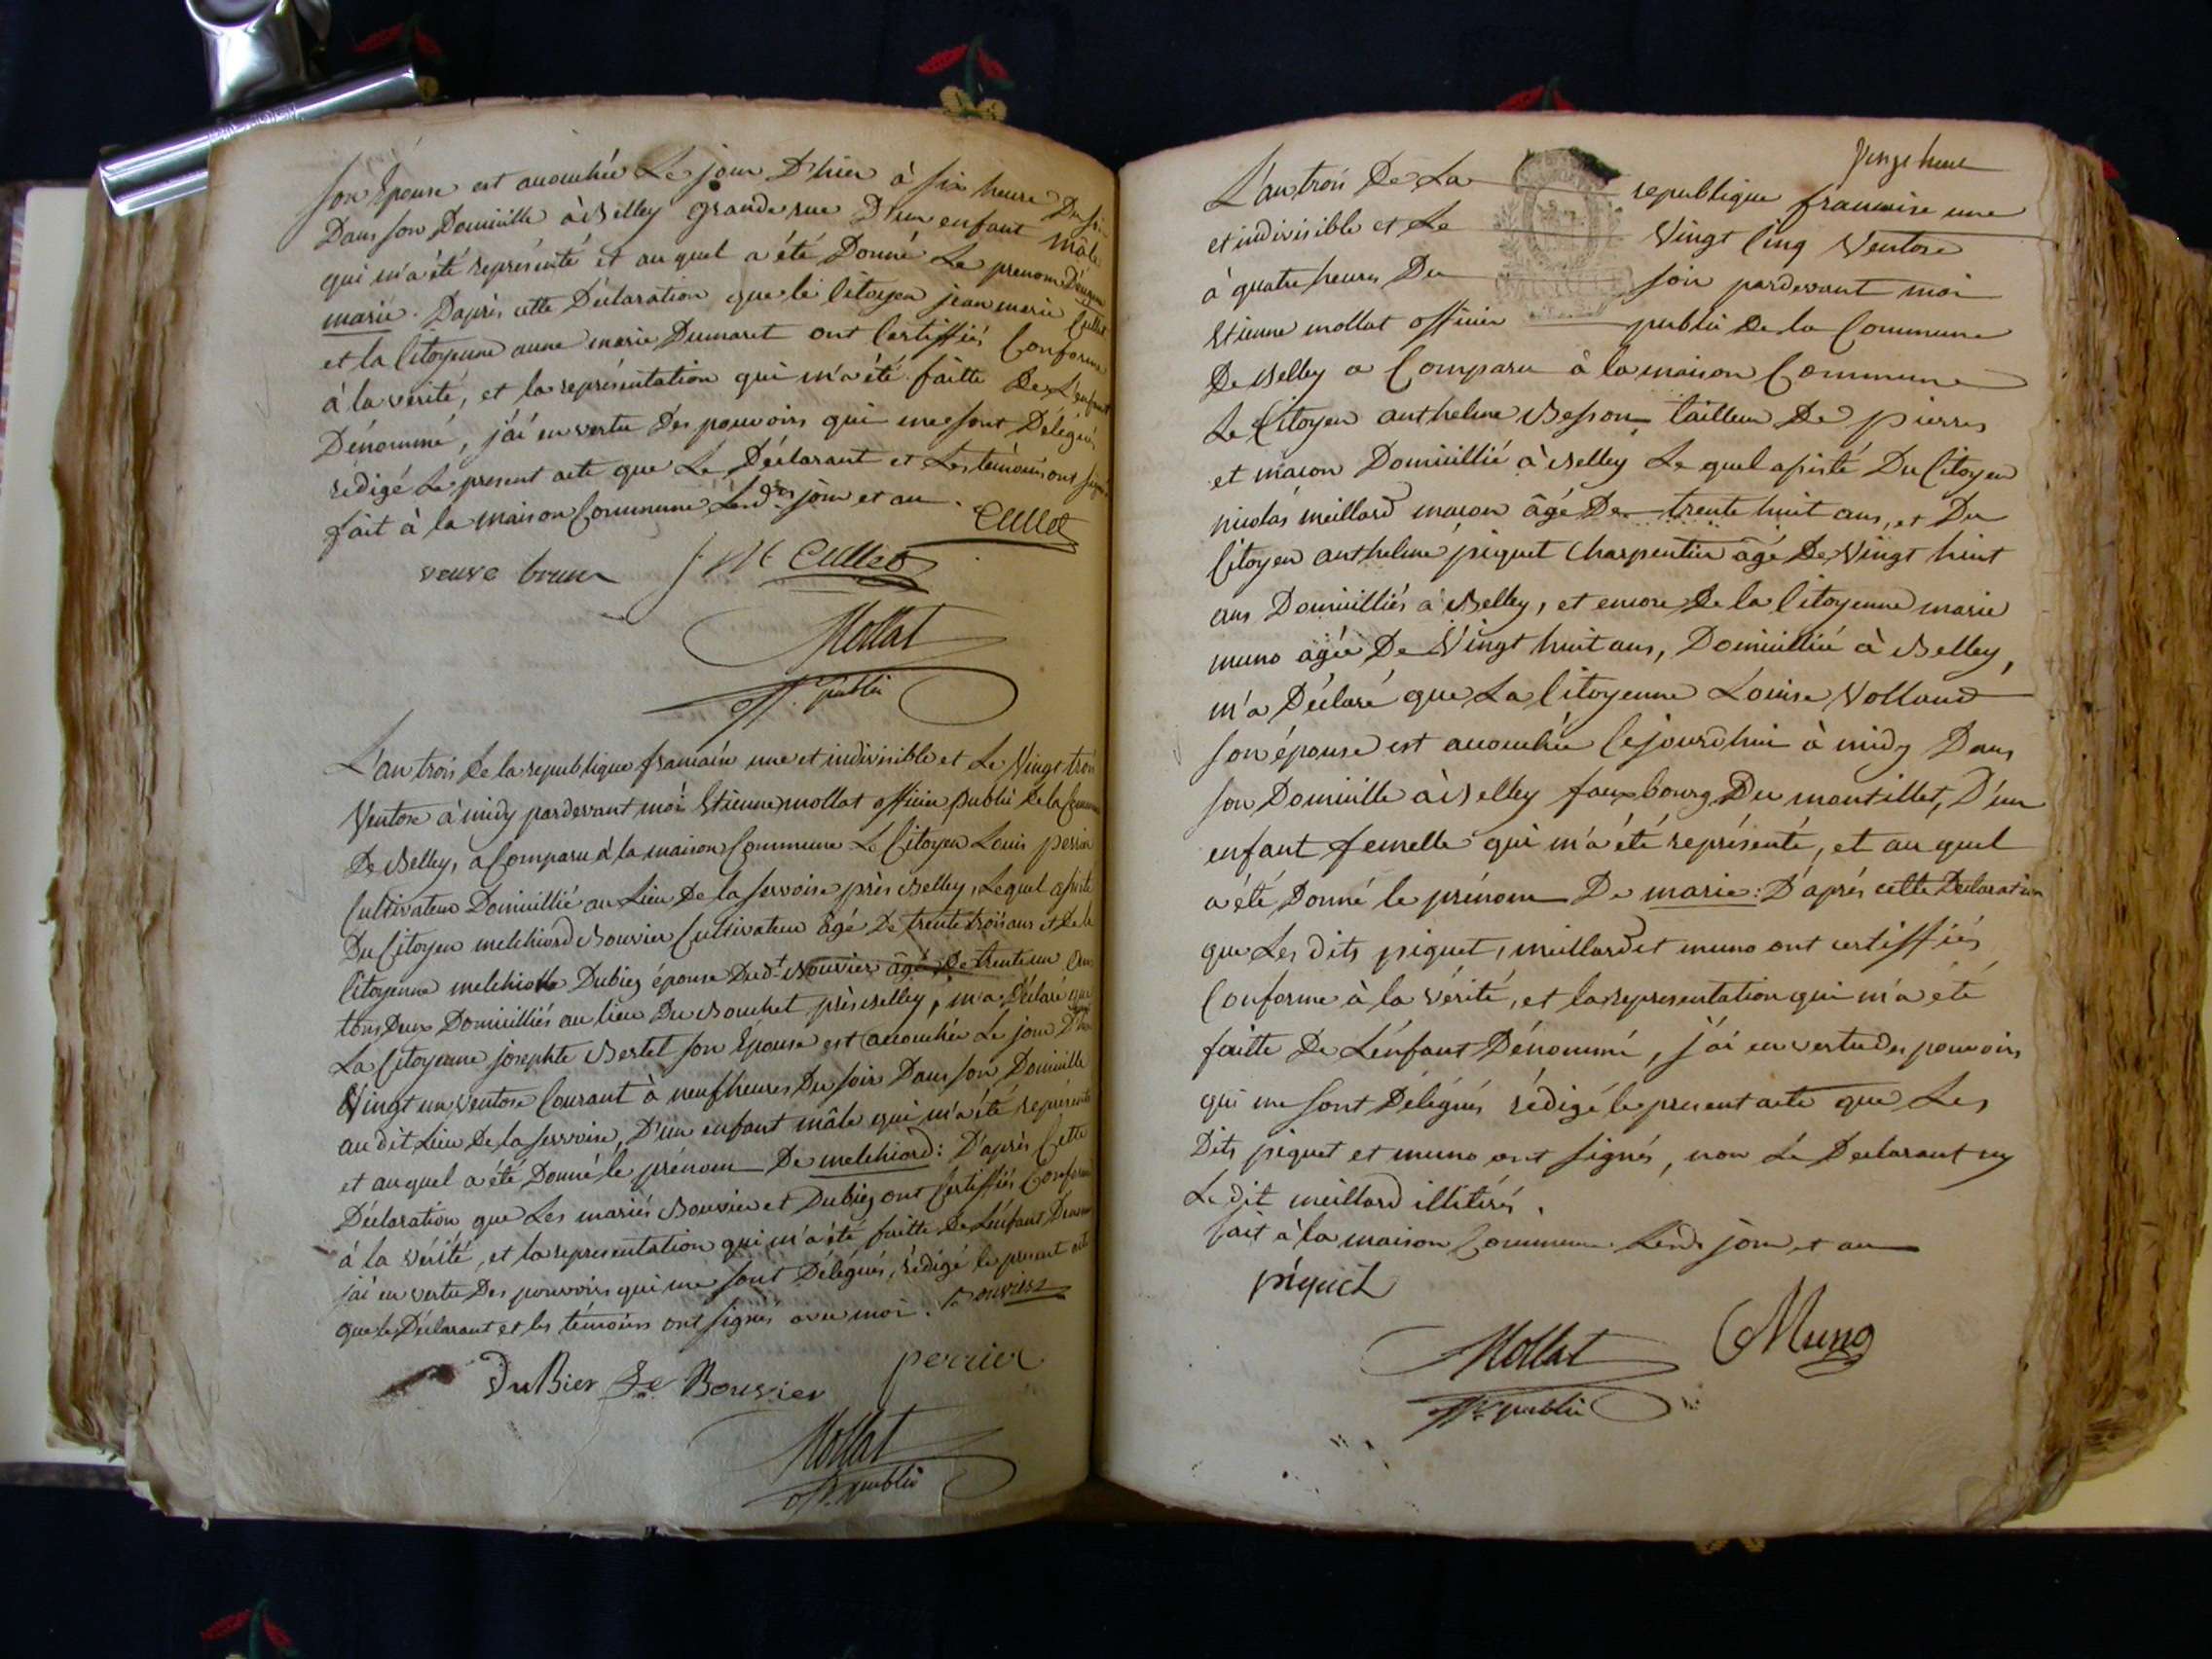 son Epouse est accouchée Le jour D'hier à six heure Du
Dans son Domicille à Belley grande rue D'un enfant mâle
qui m'a été représenté et au quel a été Donné Le prenom
marie. D'après cette Déclaration que le Citoyen jean marie Cullet
et la Citoyenne anne marie Dumaret ont Certiffiés Conforme
à la vérité, et la représentation qui m'a été faitte De L'enfant
Dénommé, j'ai en vertu Des pouvoirs qui me sont Délégués
rédigé Le present acte que Le Déclarant et Les témoins ont signé
fait à la maison Commune Lesd. jour et an. Cullet
veuve brun J M Cullet
Mollat
off. public
L'an trois De la republique francaise une et indivisible et Le Vingt trois
Ventose à midy pardevant moi Etienne mollat officier public De la Commune
De Belley, a Comparu à la maison Commune Le Citoyen Louis perrier
Cultivateur Domicillié au Lieu De la servoise près Belley, Lequel assisté
Du Citoyen melchiord Bouvier Cultivateur âgé De trente trois ans et De la
Citoyenne melchiotte Dubiez épouse Dudt Bouvier âgée De trente un ans
tous Deux Domicilliés au lieu Du Bouchet près Belley, m'a Déclaré que
La Citoyenne josephte Bertet son Epouse est accouchée Le jour D'hier
Vingt un Ventose Courant à neuf heures Du soir Dans son Domicille
au dit Lieu De la servoise, D'un enfant mâle qui m'a été représenté
et au quel a été Donné le prénom De melchiord: D'après Cette
Déclaration que Les mariés Bouvier et Dubiez ont Certiffiés Conforme
à la Vérité, et la representation qui m'a été faitte De L'enfant Dénommé
j'ai en vertu Des pouvoirs qui me sont Délégués, rédigé le present acte
que le Déclarant et les témoins ont signés avec moi. Bouvier
DuBier fe Bouvier perrier
Mollat
off. public
Vingt huit
L'an trois De La republique francaise une
et indivisible et Le Vingt Cinq Ventose
à quatre heures Du soir pardevant moi
Etienne mollat officier public De la Commune
De Belley a Comparu à la maison Commune
Le Citoyen anthelme Besson tailleur De pierres
et macon Domicillié à Belley Le quel assisté Du Citoyen
nicolas meillard macon âgé De trente huit ans, et Du
Citoyen anthelme piquet Charpentier âgé De Vingt huit
ans Domicilliés à Belley, et encore De la Citoyenne marie
muno âgée De Vingt huit ans, Domicilliée à Belley,
m'a Déclaré que La Citoyenne Louise Volland
son épouse est accouchée Cejourd'hui à midy Dans
son Domicille à Belley faux bourg Du montillet, D'un
enfant femelle qui m'a été représenté, et au quel
a été Donné le prénom De marie: D'après cette Déclaration
que Les dits piquet, meillard et muno ont certiffiés
Conforme à la Vérité, et la representation qui m'a été
faitte De L'énfant Dénommé, j'ai en vertu des pouvoirs
qui me sont Délégués rédigé le present acte que Les
Dits piquet et muno ont signés, non Le Declarant ny
Le dit meillard illitérés.
fait à la maison Commune Lesd. jour et an
piquet
Mollat Muno
off. public